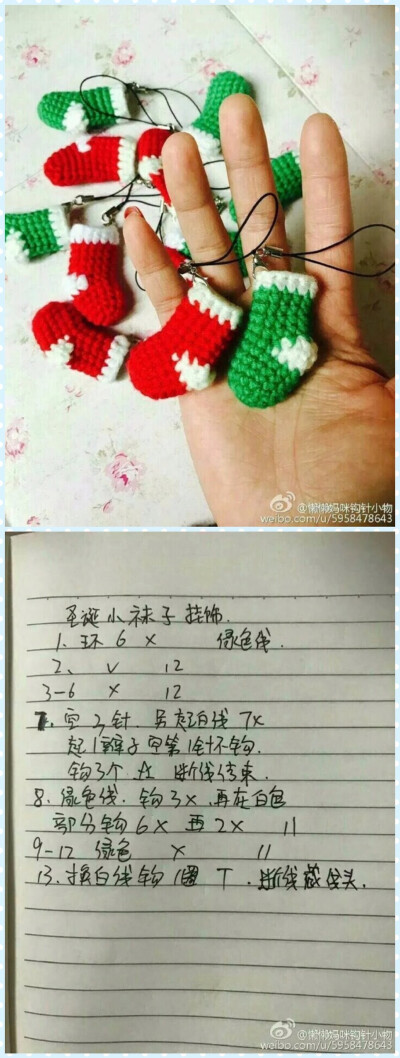 @懒懒妈咪钩针小物
weibo.com/u/5958478643
圣诞小袜子挂饰.
1. 环 6 X 绿色线.
2. V 12
3-6 X 12
7. 空3针. 另起白线 7X
起1辫子 空第1针不钩.
钩3个 A 断线结束.
8. 绿色线. 钩3X 再在白色
部分钩 6X 再 2X 11
9-12 绿色 X 11
13. 换白线钩1圈 T. 断线藏线头.
@懒懒妈咪钩针小物
weibo.com/u/5958478643